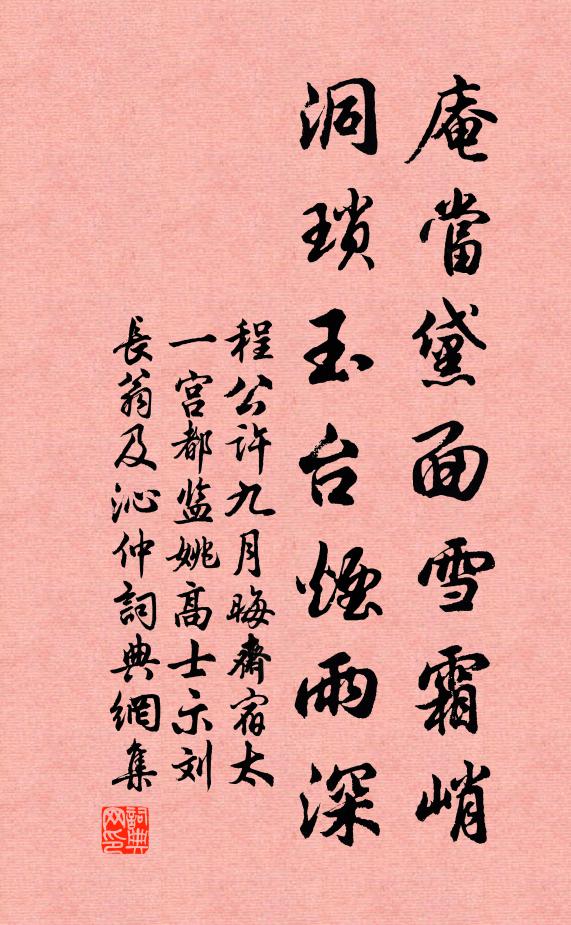 庵當黛面雪霜峭
洞瑣玉台煙雨深
程公许九月晦齋宿太
一宫都监姚高士示刘
長翁及沁仲詞典網集
詞典网印